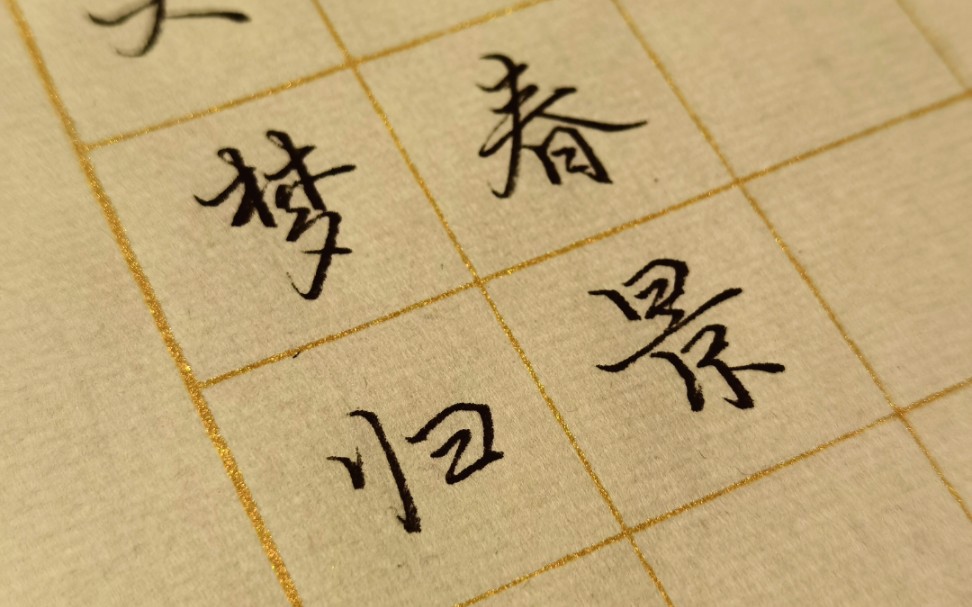 春景
梦归